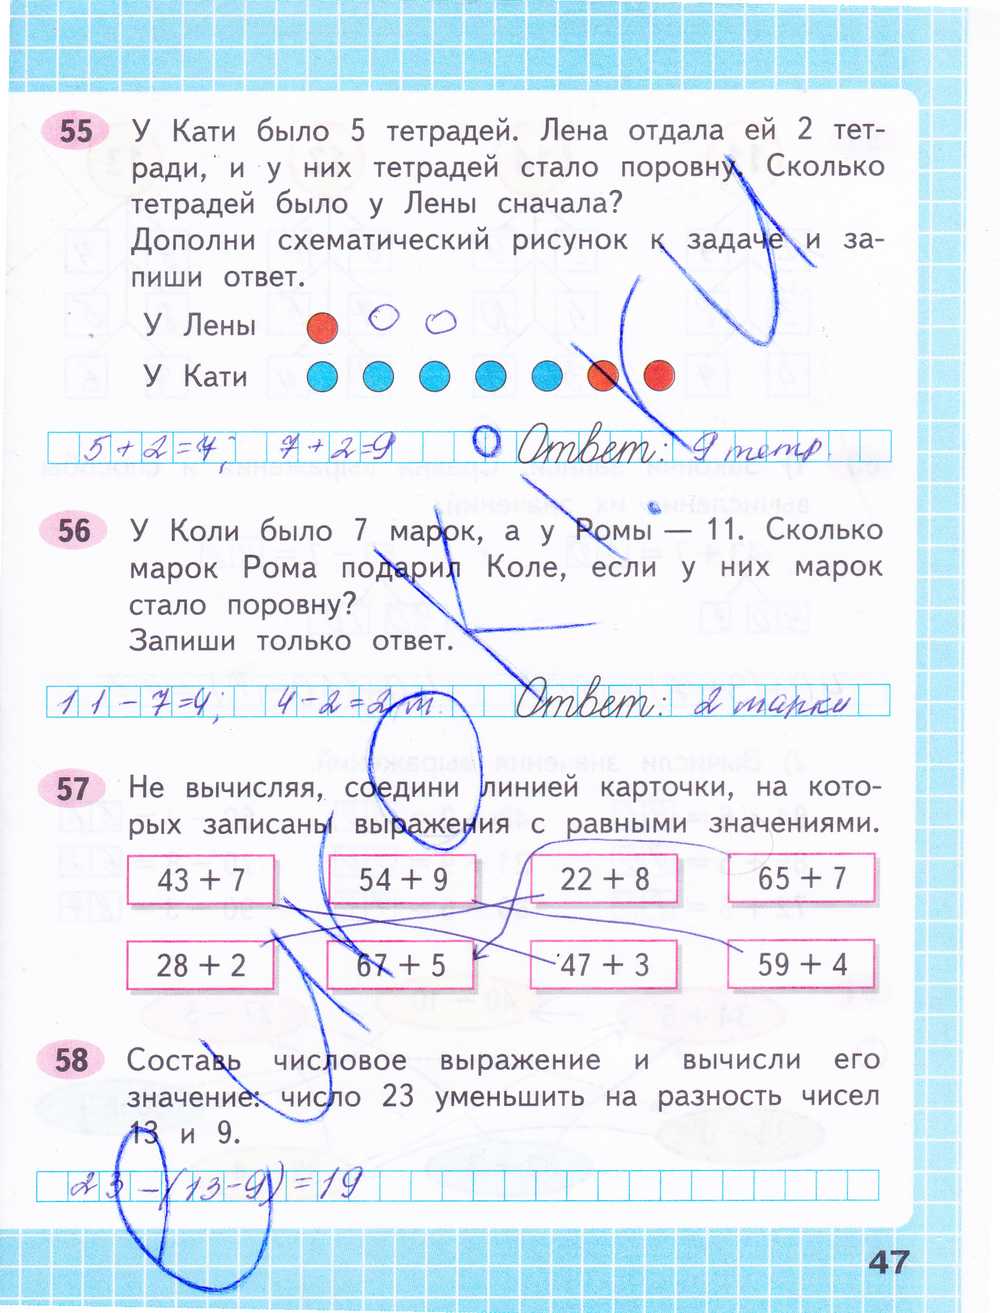 55 У Кати было 5 тетрадей. Лена отдала ей 2 тет-
ради, и у них тетрадей стало поровну. Сколько
тетрадей было у Лены сначала?
Дополни схематический рисунок к задаче и за-
пиши ответ.
У Лены
У Кати
5+2=7; 7+2=9 Ответ: 9 тетр.
56 У Коли было 7 марок, а у Ромы — 11. Сколько
марок Рома подарил Коле, если у них марок
стало поровну?
Запиши только ответ.
11-7=4; 4-2=2 м. Ответ: 2 марки
57 Не вычисляя, соедини линией карточки, на кото-
рых записаны выражения с равными значениями.
43 + 7 54 + 9 22 + 8 65 + 7
28 + 2 67 + 5 47 + 3 59 + 4
58 Составь числовое выражение и вычисли его
значение: число 23 уменьшить на разность чисел
13 и 9.
23-(13-9)=19
47